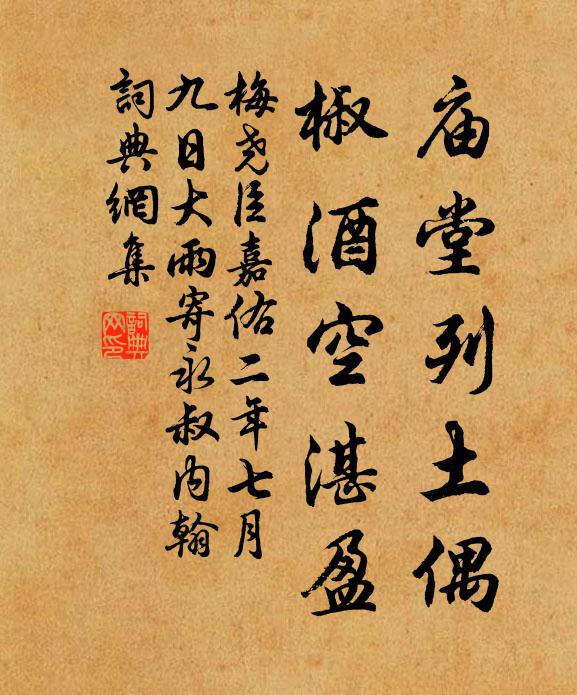 庙堂列土偶
椒酒空湛盈
梅尧臣嘉佑二年七月
九日大雨寄永叔内翰
詞典網集
詞典网印